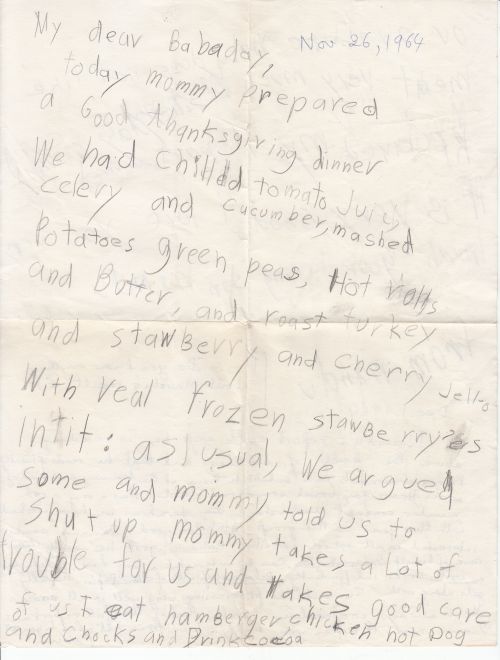 My dear Babaday,
Nov 26, 1964
today mommy prepared
a Good thanksgiving dinner
We had Chilled tomato Juice,
celery and cucumber, mashed
Potatoes green peas, Hot rolls
and Butter, and roast turkey
and stawBerry and cherry Jell-o
With real frozen stawBe rry'es
intit: aslusual, We argued
some and mommy told us to
Shut up mommy takes a Lot of
trouble for us and takes good care
of us I eat hamberger chicken hot Dog
and Chocks and Drink cocoa